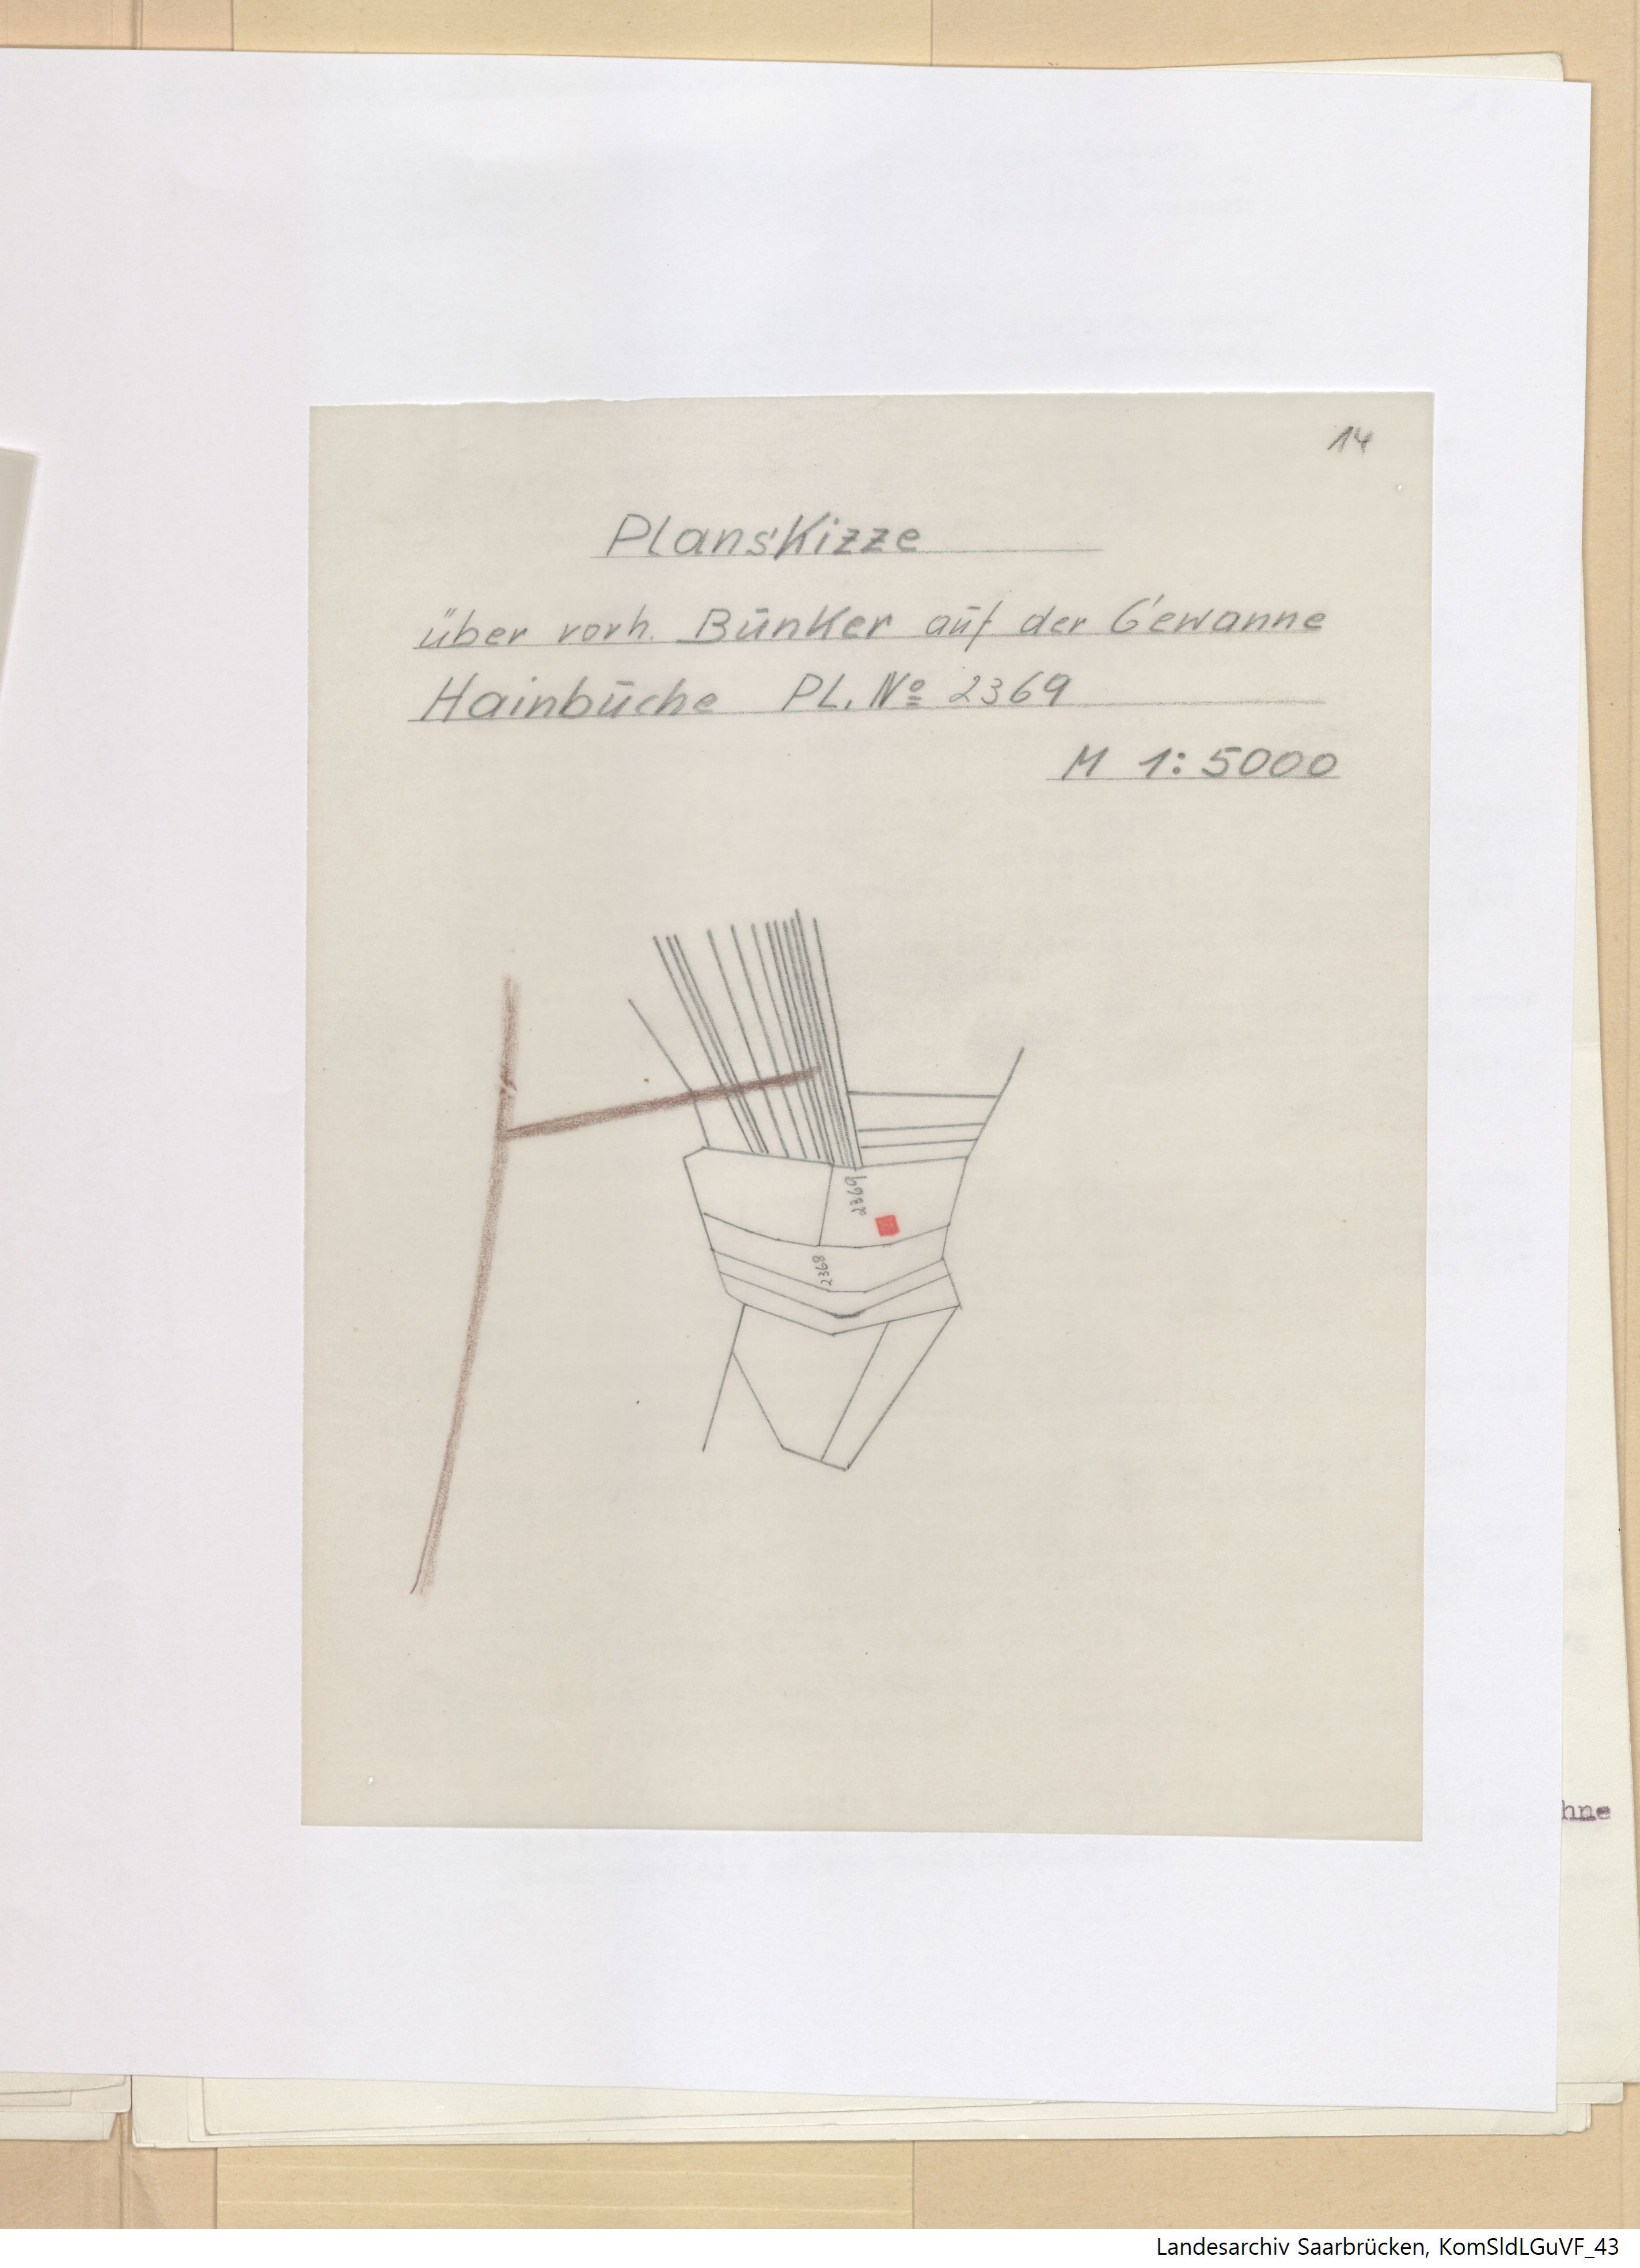 14
Planskizze
über vorh. Bunker auf der Gewanne
Hainbuche PL. No 2369
M 1:5000
2369
2368
hne
Landesarchiv Saarbrücken, KomSldLGuVF_43